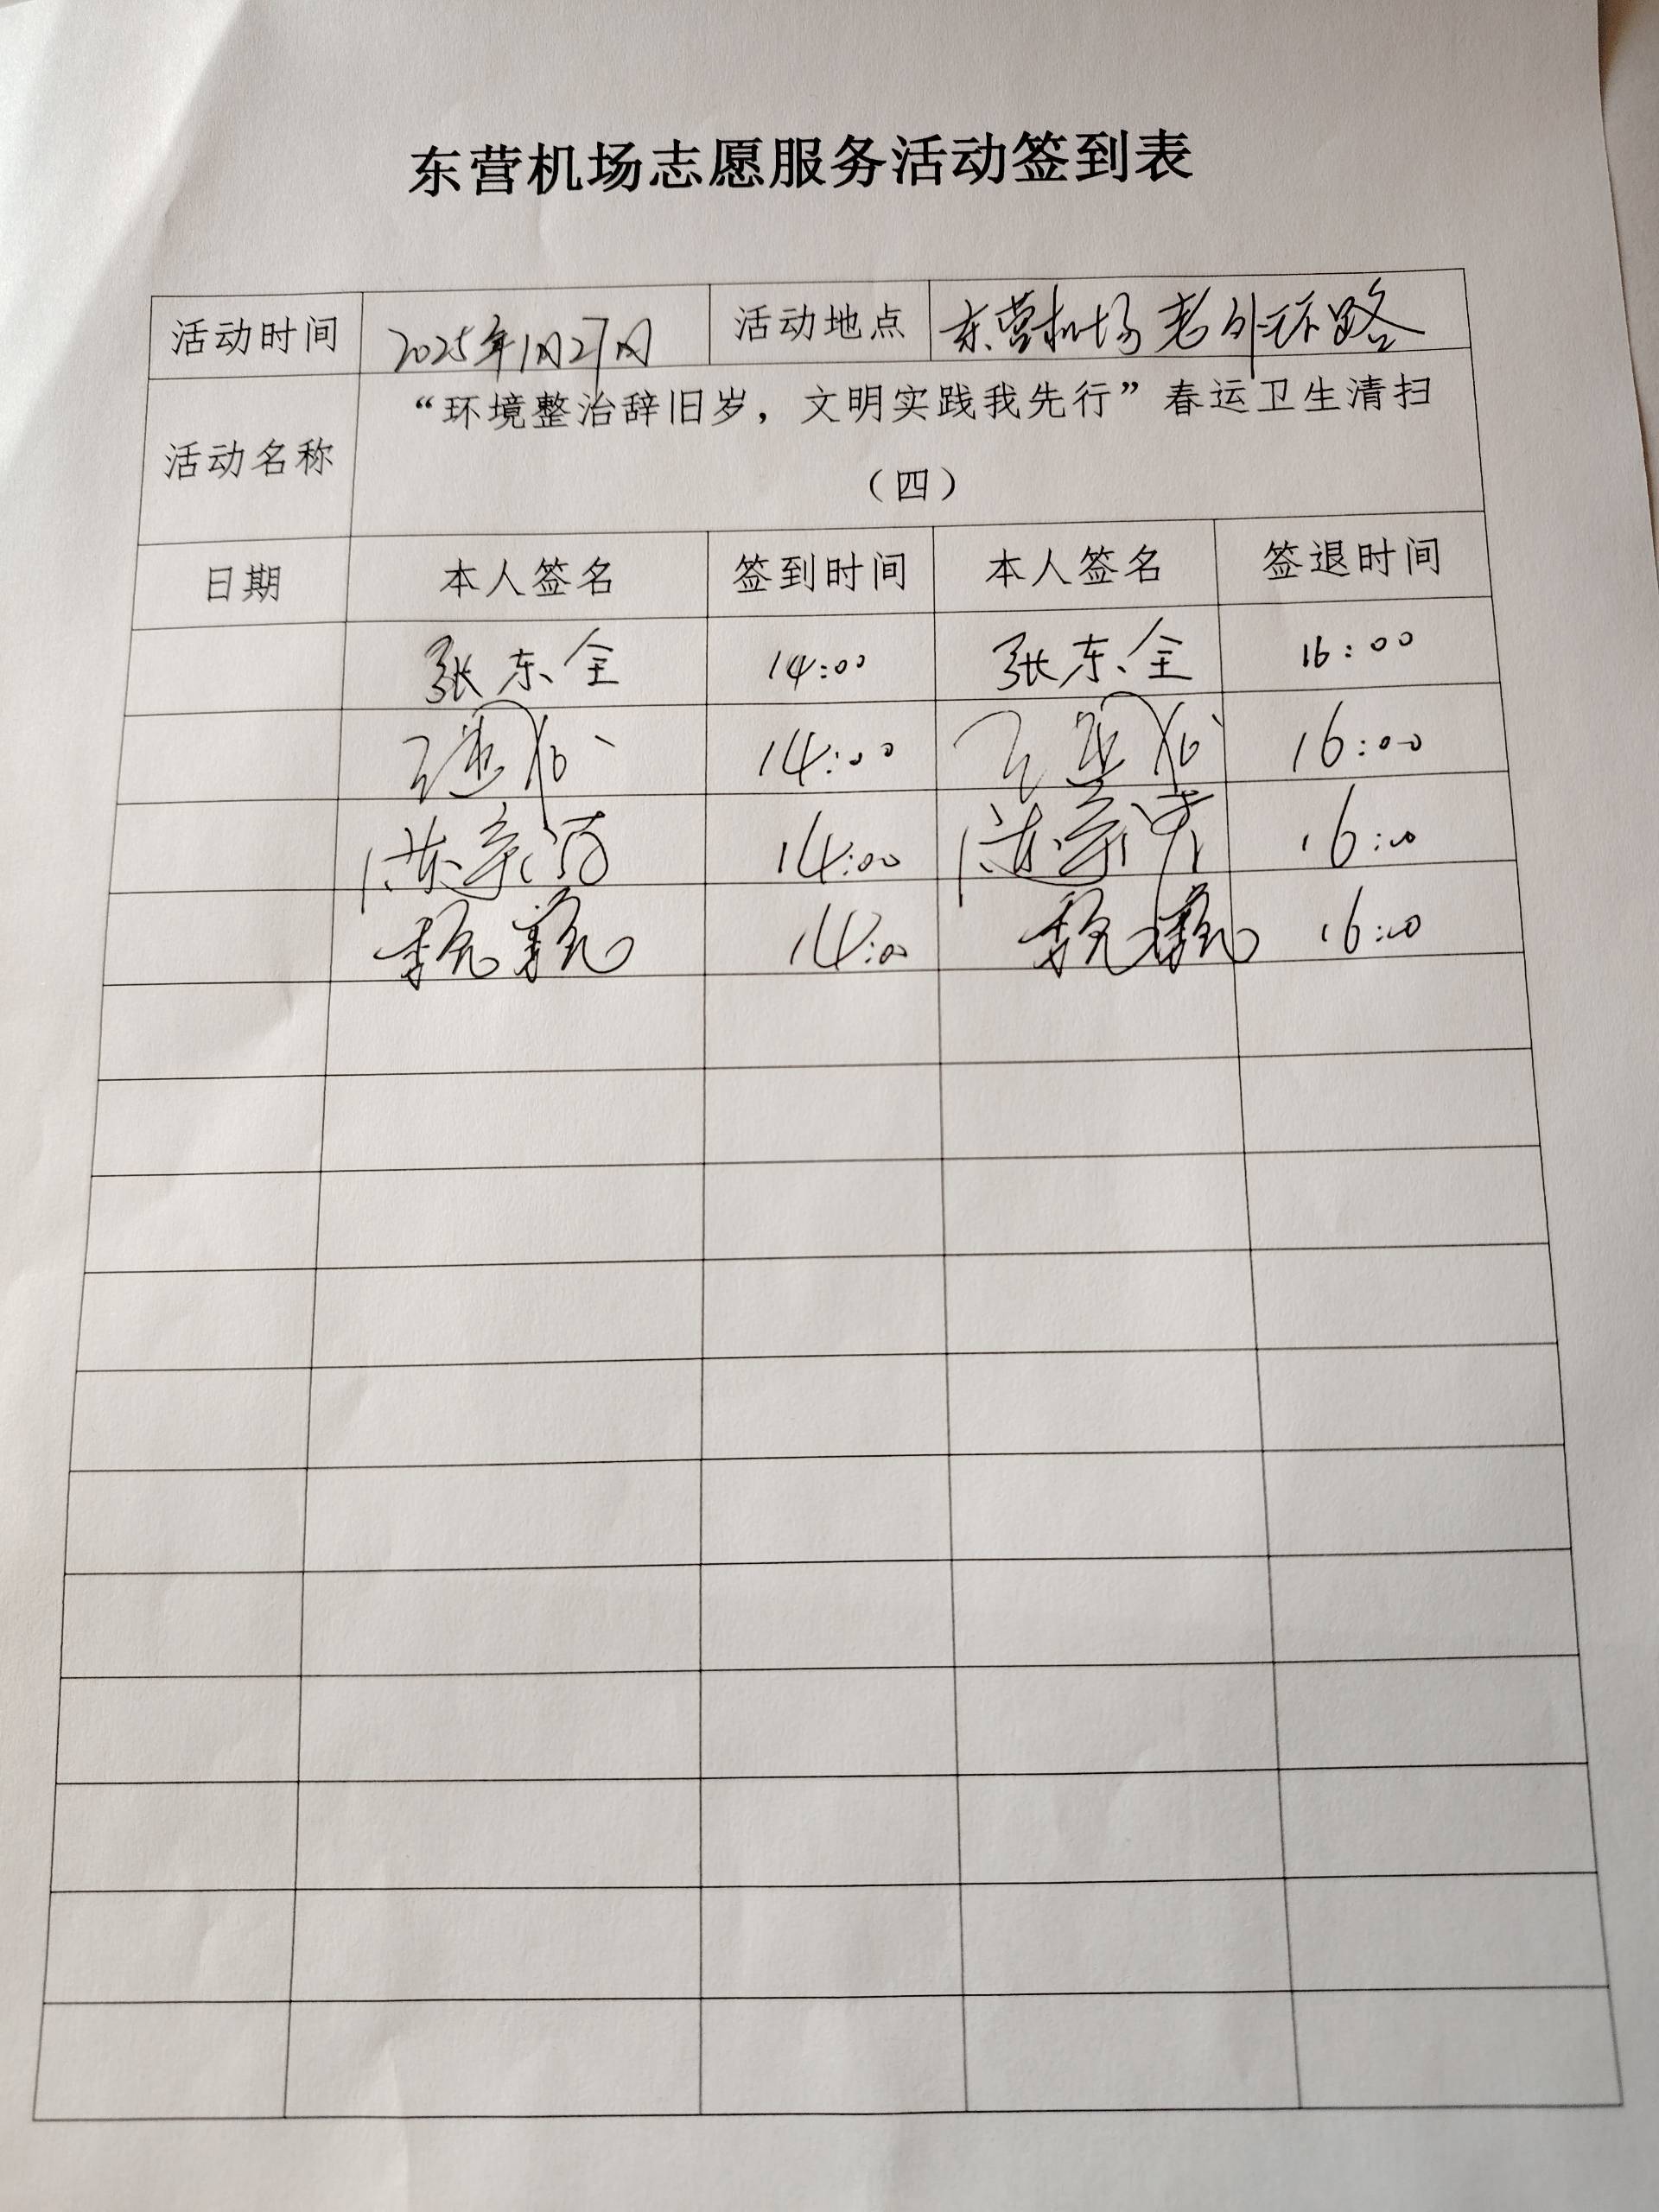 东营机场志愿服务活动签到表
活动时间 2025年1月27日 活动地点 东营机场老外环路
活动名称 “环境整治辞旧岁，文明实践我先行”春运卫生清扫
（四）
日期 本人签名 签到时间 本人签名 签退时间
张东全 14:00 张东全 16:00
14:00 16:00
14:00 16:00
14:00 16:00